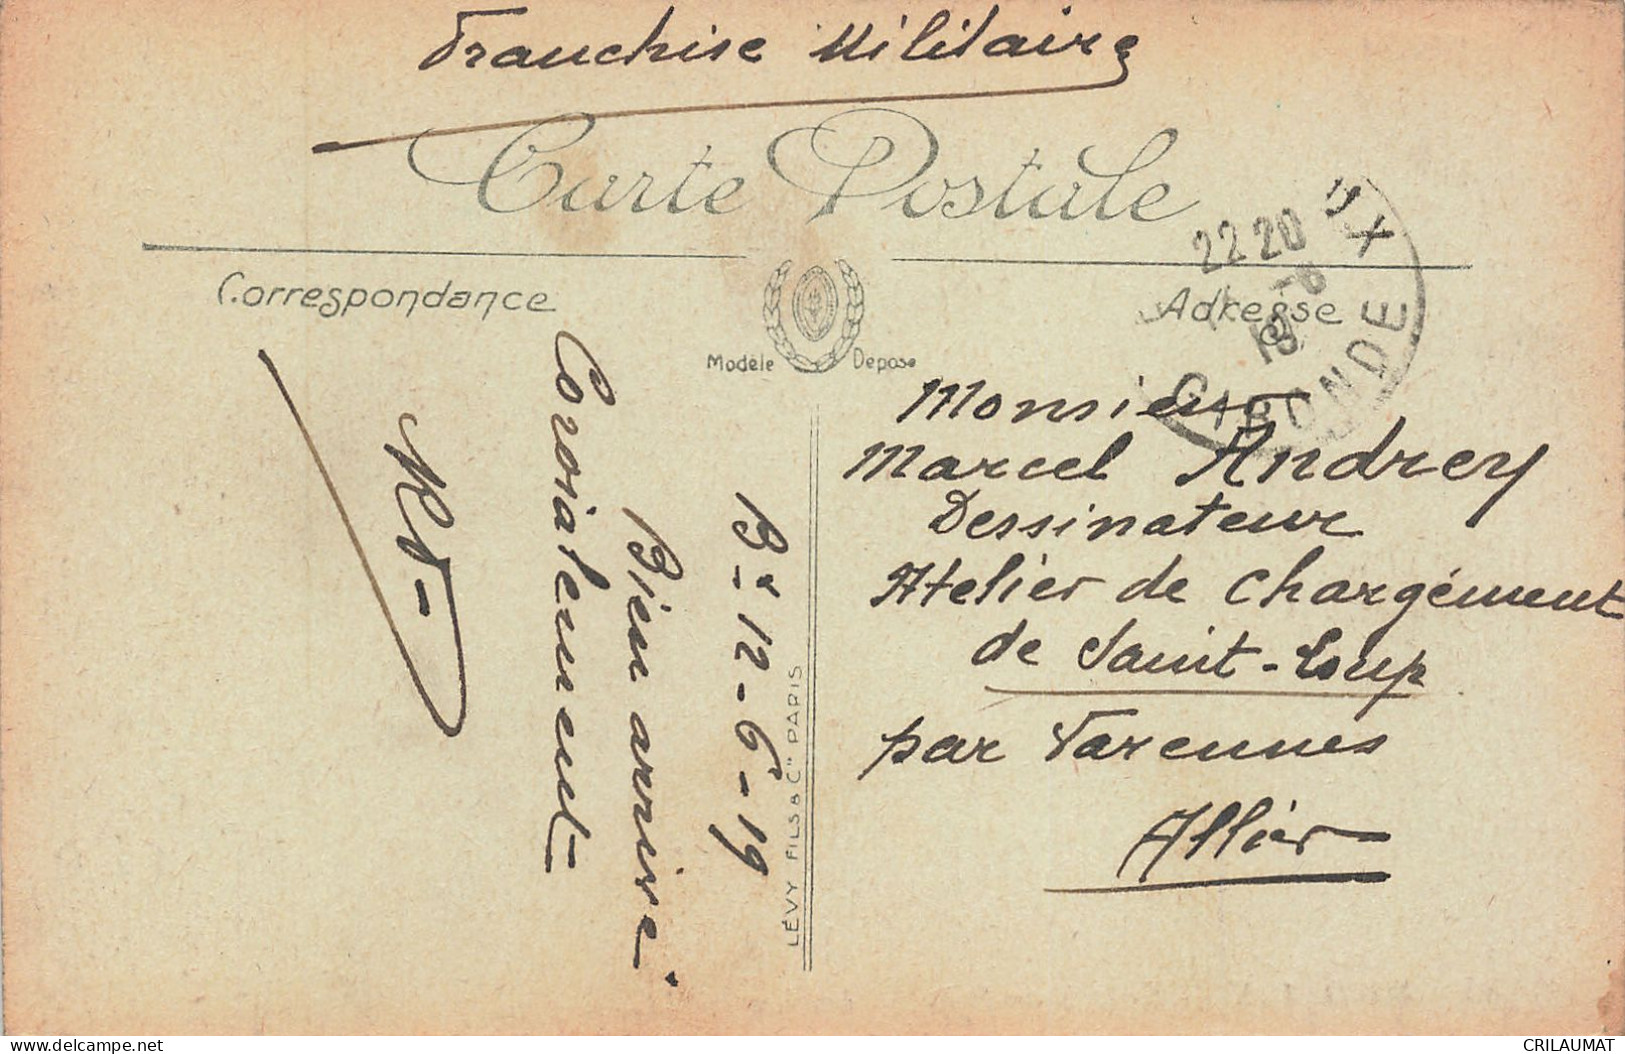 Franchise Militaire
Carte Postale
Correspondance
Adresse
Modèle Déposé
22 20
UX
GIRONDE
Bx 12-6-19
Bien arrivé.
Cordialement
LÉVY FILS & Cie PARIS
Monsieur
Marcel Andrey
Dessinateur
Atelier de Chargement
de Saint-Loup
par Varennes
Allier
CRILAUMAT